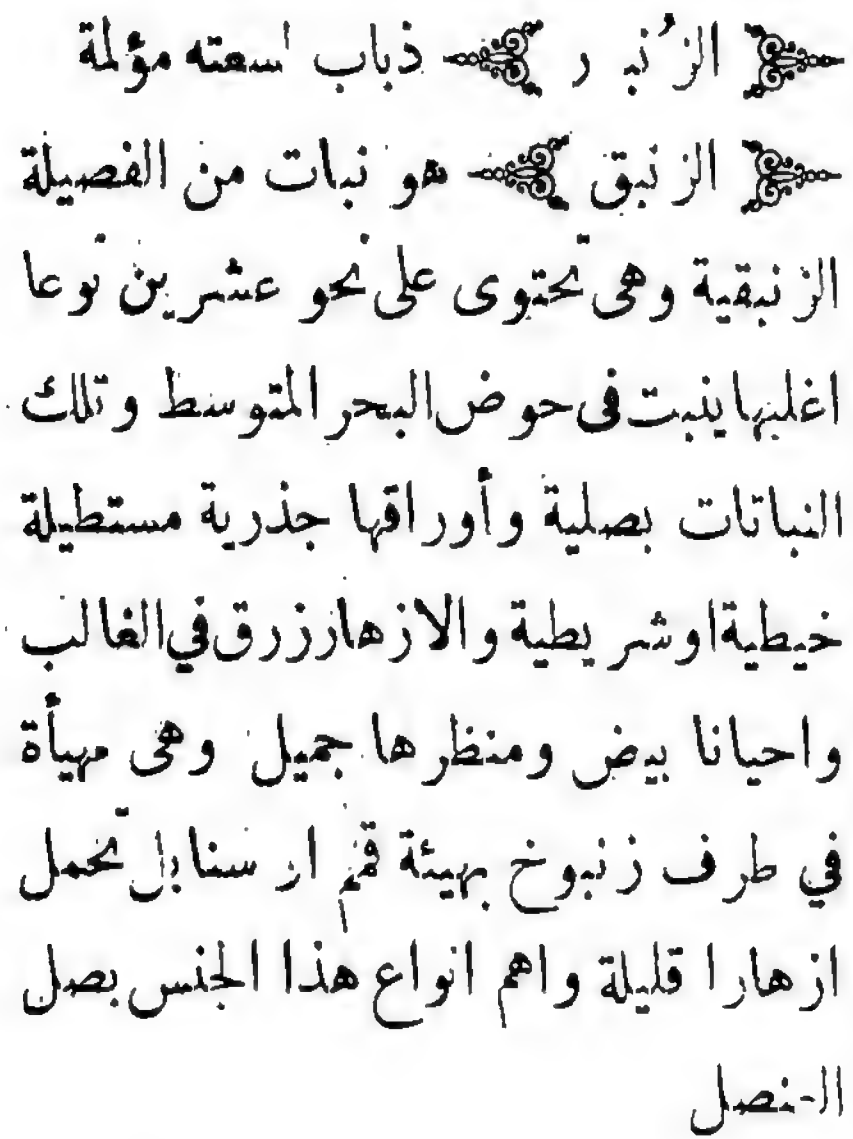 الزُنبور ذباب لسعته مؤلمة
الزنبق هو نبات من الفصيلة
الزنبقية وهى تحتوى على نحو عشرين نوعا
اغلبها ينبت فى حوض البحر المتوسط وتلك
النباتات بصلية وأوراقها جذرية مستطيلة
خيطية او شريطية والازهار زرق في الغالب
واحيانا بيض ومنظرها جميل وهى مهيأة
في طرف زنبوخ بهيئة قمم او سنابل تحمل
ازهارا قليلة واهم انواع هذا الجنس بصل
العنصل